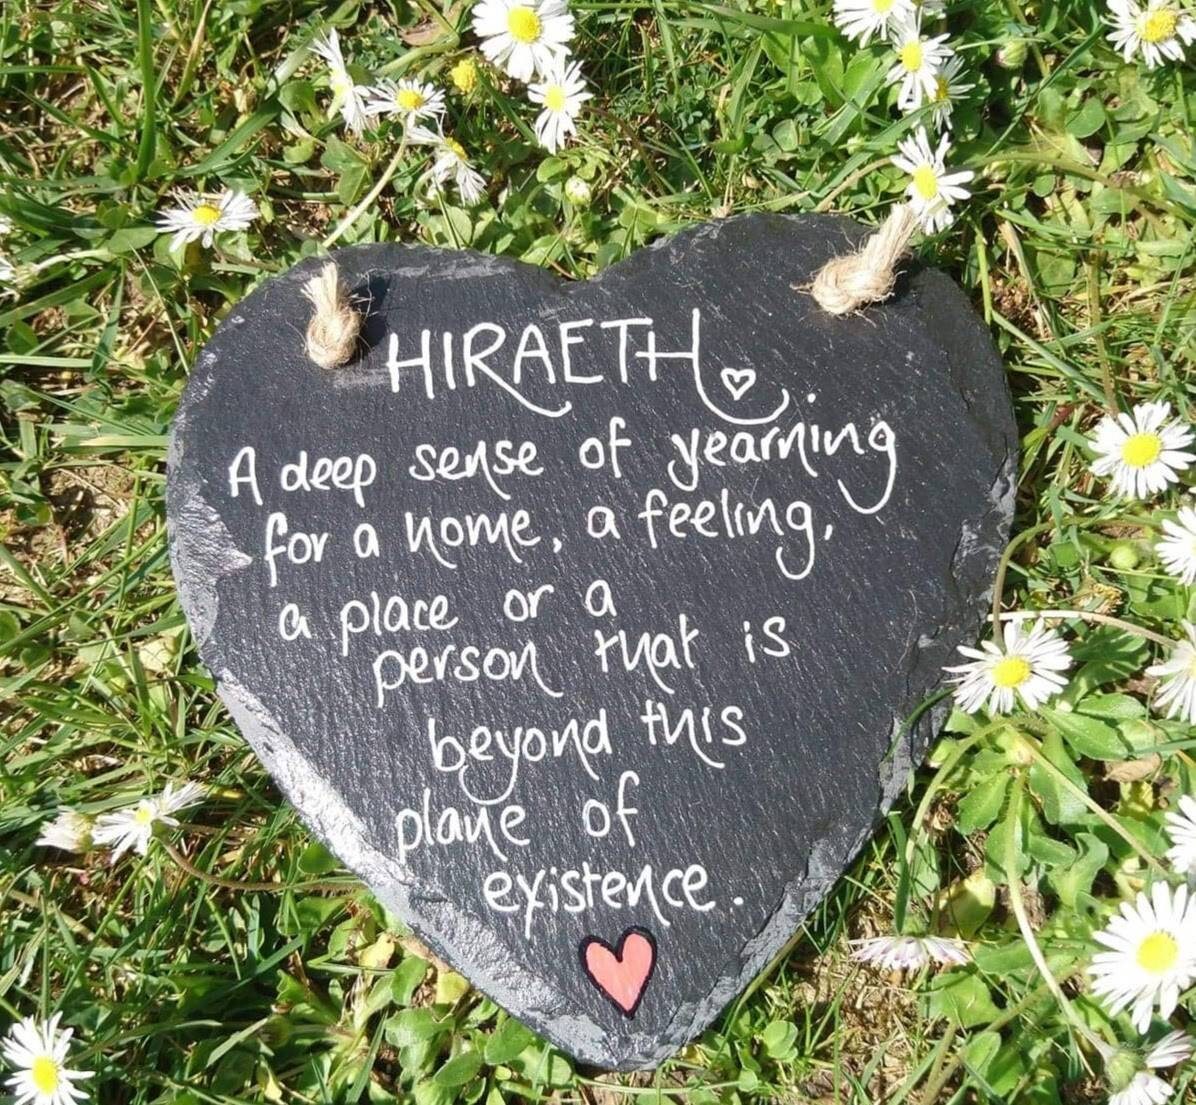 HIRAETH
A deep sense of yearning
for a home, a feeling,
a place or a
person that is
beyond this
plane of
existence.